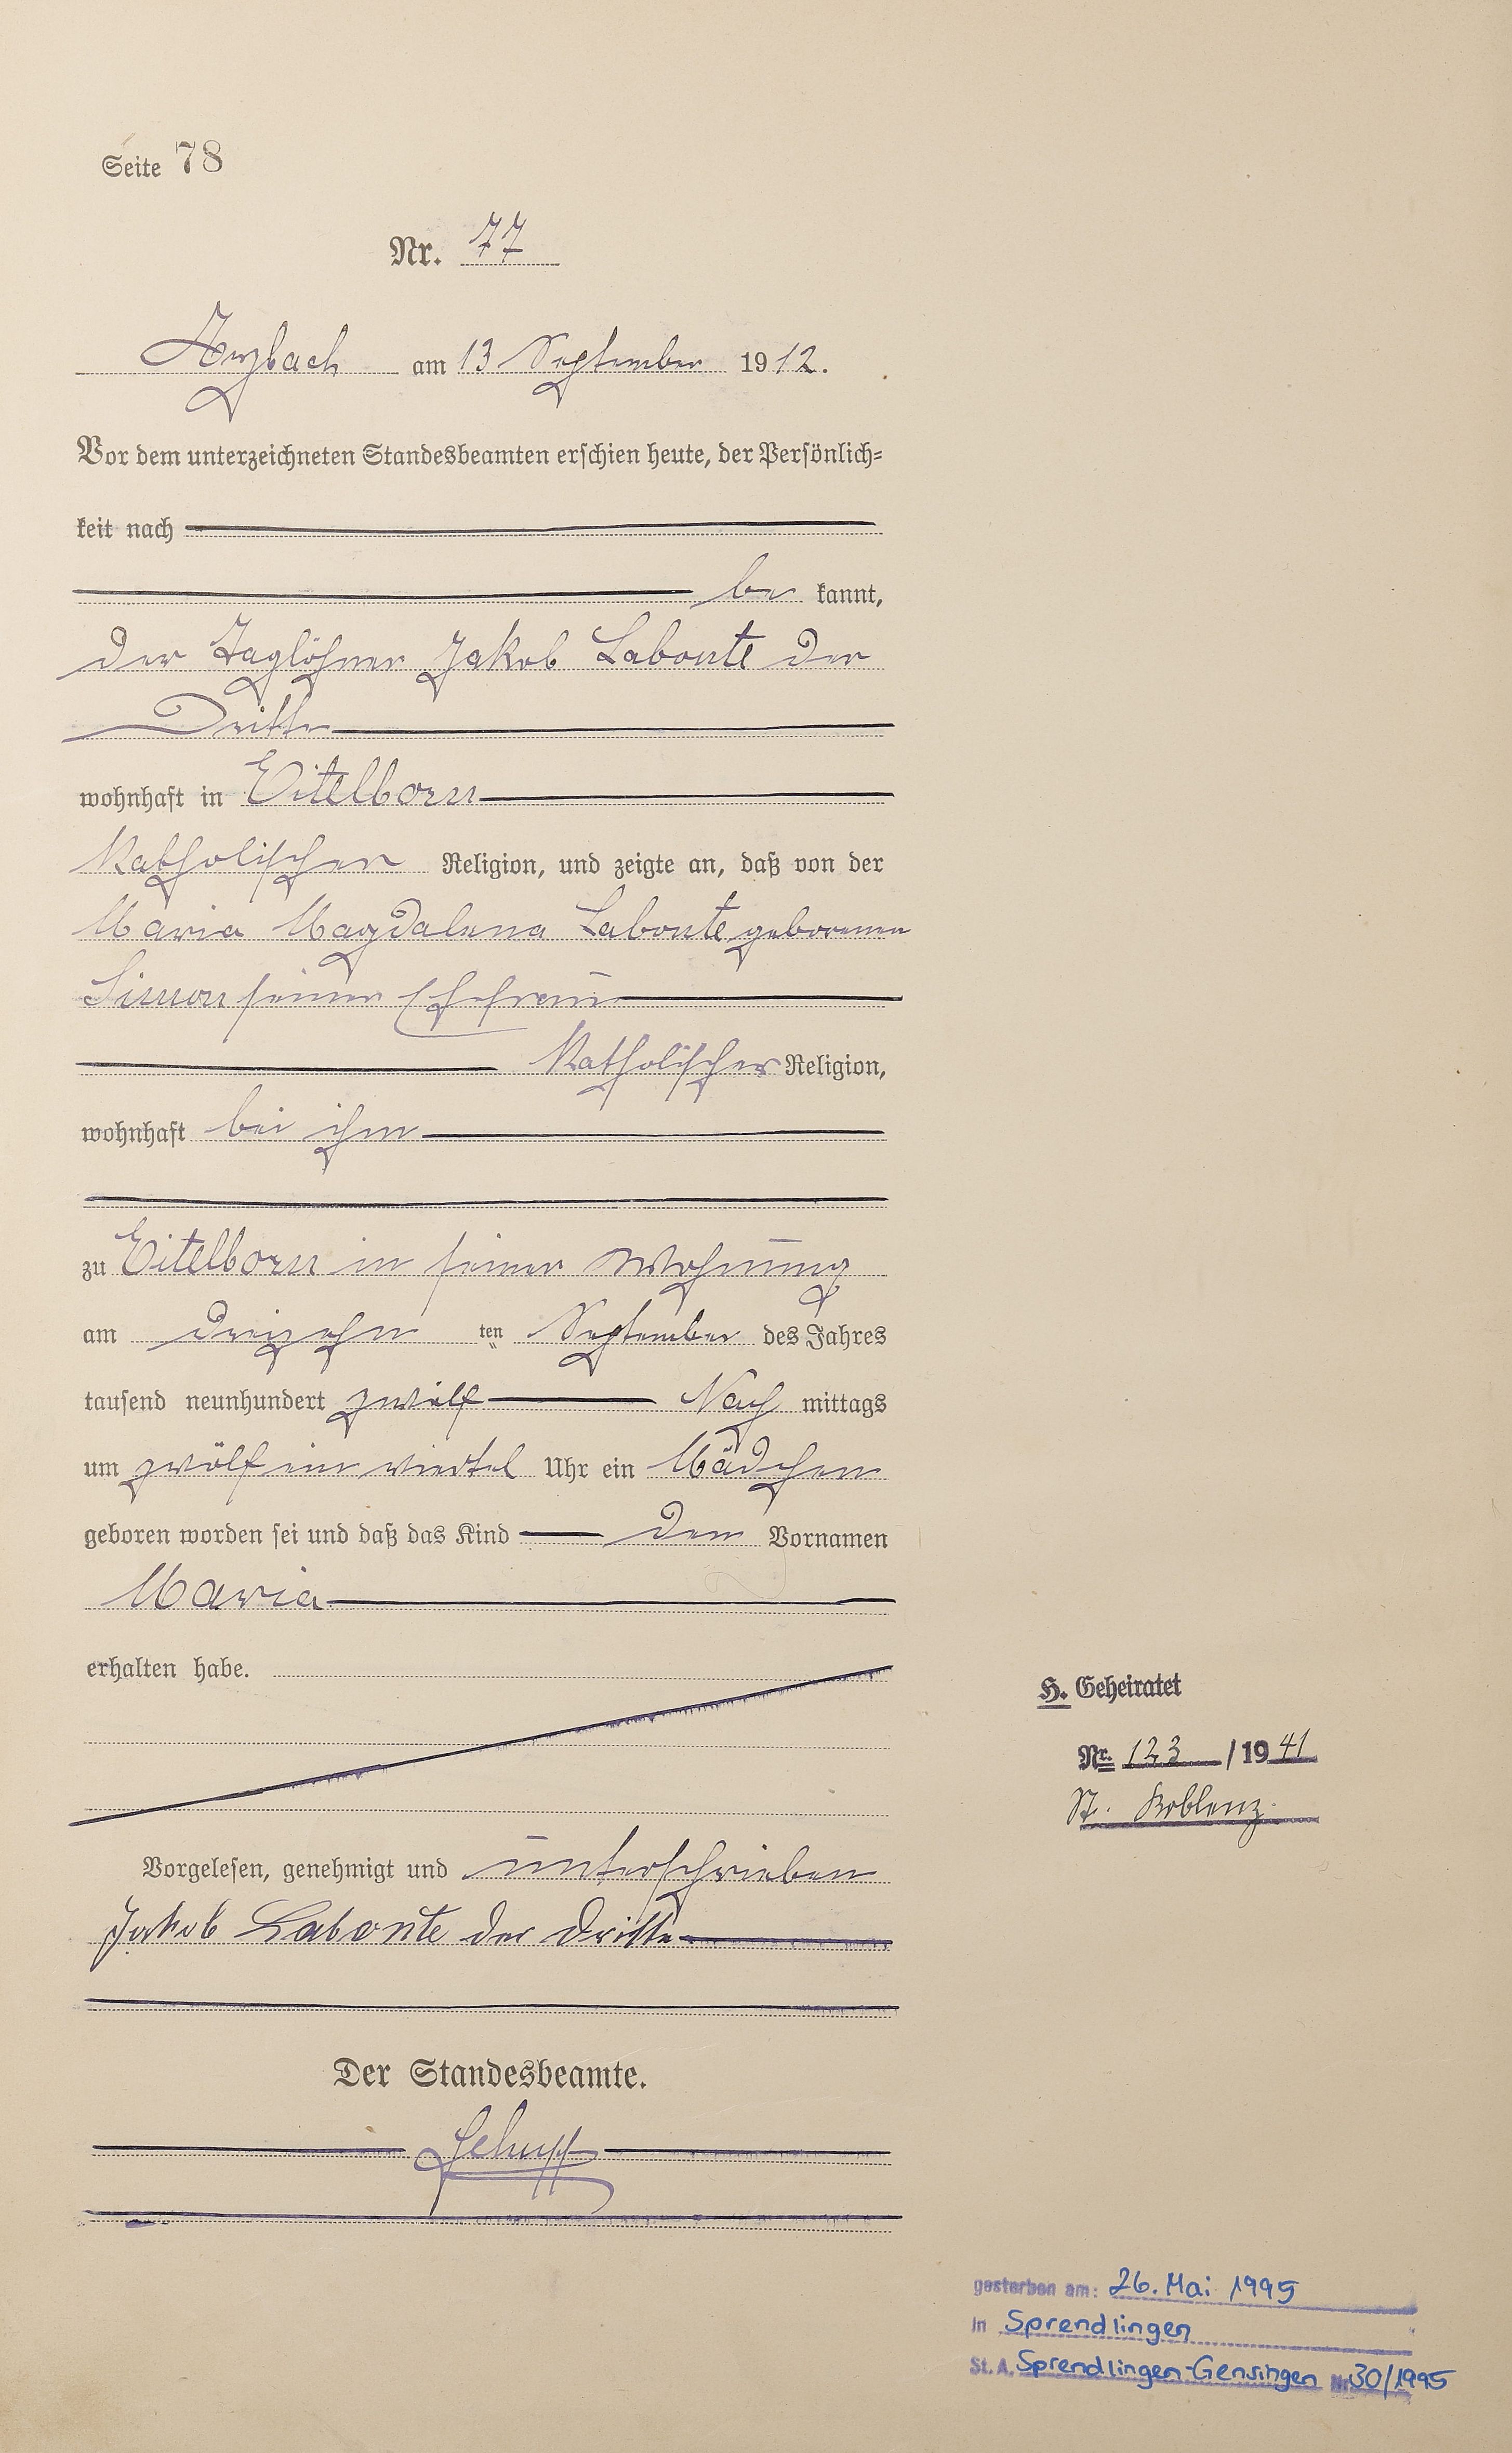 Seite 78
Nr. 77
Arzbach am 13 September 1912.
Vor dem unterzeichneten Standesbeamten erschien heute, der Persönlich=
keit nach
be kannt,
der Taglöhner Jakob Labonte der
Dritte
wohnhaft in Eitelborn
Katholischer Religion, und zeigte an, daß von der
Maria Magdalena Labonte geborenen
Simon seiner Ehefrau
Katholischer Religion,
wohnhaft bei ihm
zu Eitelborn in seiner Wohnung
am dreizehn ten September des Jahres
tausend neunhundert zwölf Nach mittags
um zwölf ein viertel Uhr ein Mädchen
geboren worden sei und daß das Kind den Vornamen
Maria
erhalten habe.
H. Geheiratet
Nr. 123 / 1941
St. Koblenz.
Vorgelesen, genehmigt und unterschrieben
Jakob Labonte der dritte
Der Standesbeamte.
gestorben am: 26. Mai 1995
in Sprendlingen
St. A. Sprendlingen-Gensingen Nr. 30/1995